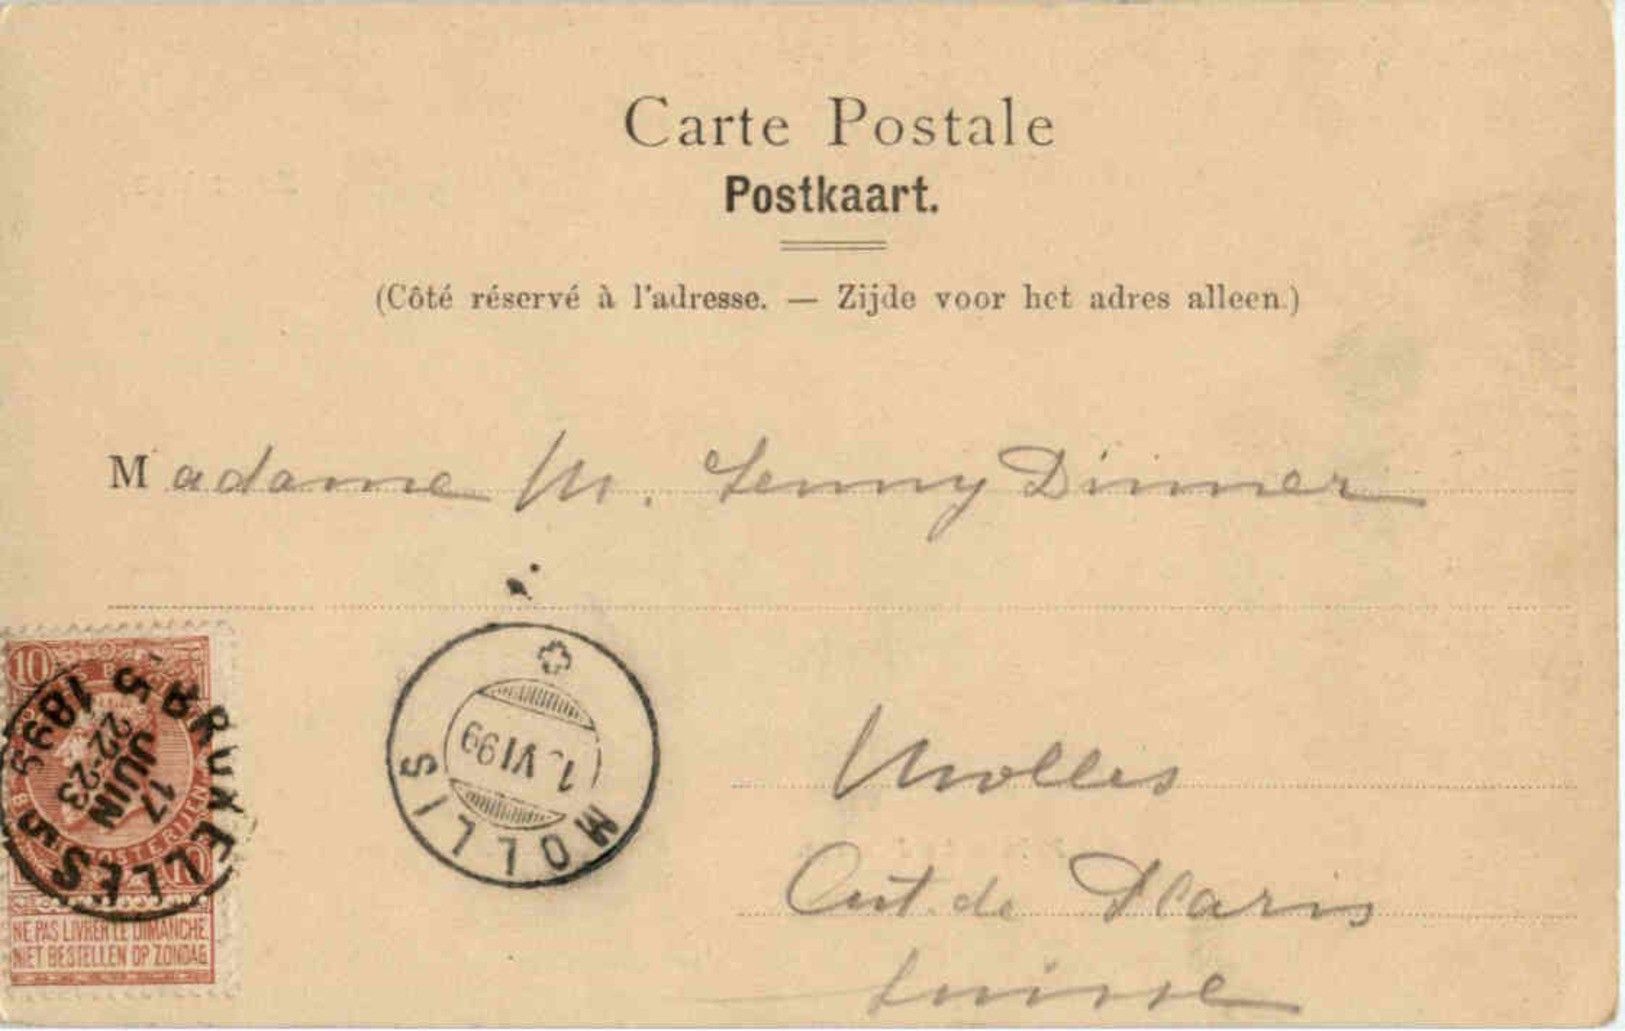 Carte Postale
Postkaart.
(Côté réservé à l'adresse. — Zijde voor het adres alleen.)
Madame M. Jenny Dinner
Mollis
Cnt. de Glaris
Suisse
10
BRUXELLES 5
17 JUIN
22-23
1899
NE PAS LIVRER LE DIMANCHE.
NIET BESTELLEN OP ZONDAG
MOLLIS
VI 99